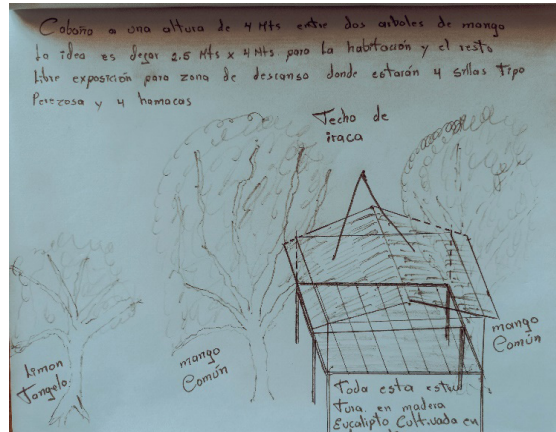 Cabaña a una altura de 4 Mts entre dos arboles de mango
La idea es dejar 2.5 Mts x 4 Mts para la habitación y el resto
libre exposición para zona de descanso donde estarán 4 sillas tipo
Perezosa y 4 hamacas
Techo de
iraca
Limon
Tangelo
mango
Común
mango
Común
Toda esta estruc
tura, en madera
Eucalipto Cultivada en